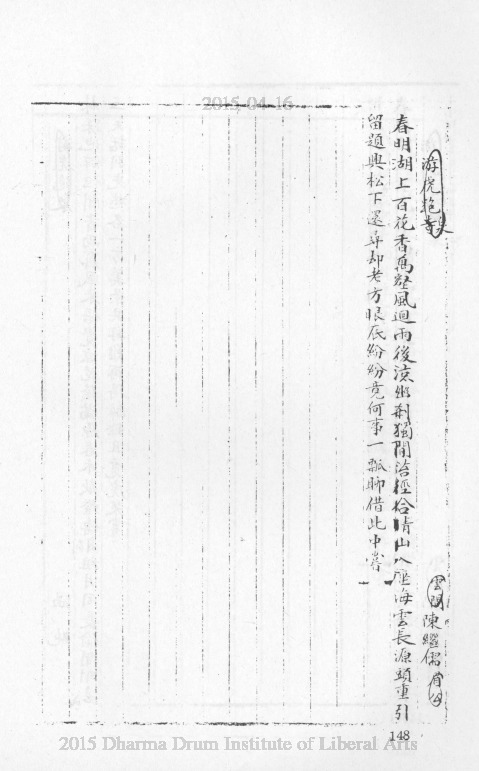 2015-04-16
游虎跑泉
雲間陳繼儒眉公
春明湖上百花香萬壑風迴雨後涼幽刹獨開沿徑合晴山入座海雲長源頭重引
留題興松下還尋却老方眼底紛紛竟何事一瓢聊借此中嘗
148
2015 Dharma Drum Institute of Liberal Arts